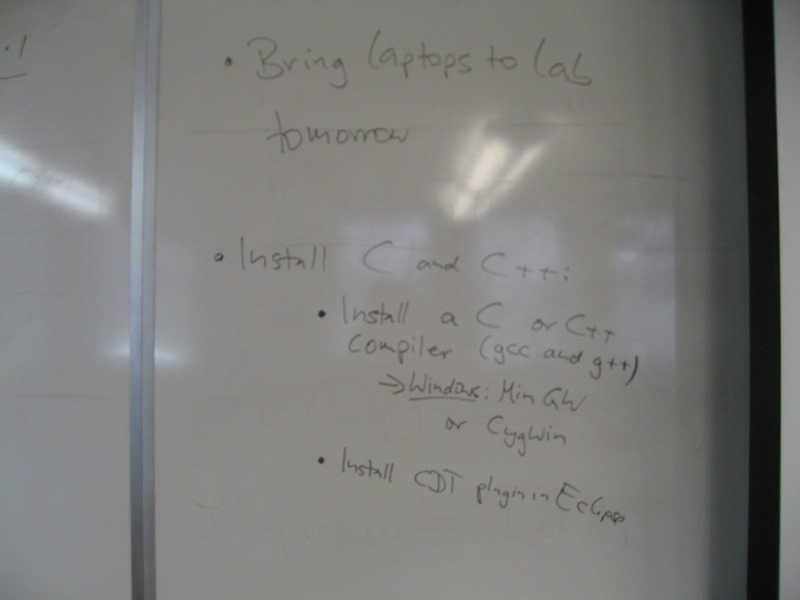 .1
• Bring laptops to lab
tomorrow
• Install C and C++:
• Install a C or C++
compiler (gcc and g++)
→ Windows: MinGW
or CygWin
• Install CDT plugin in Eclipse